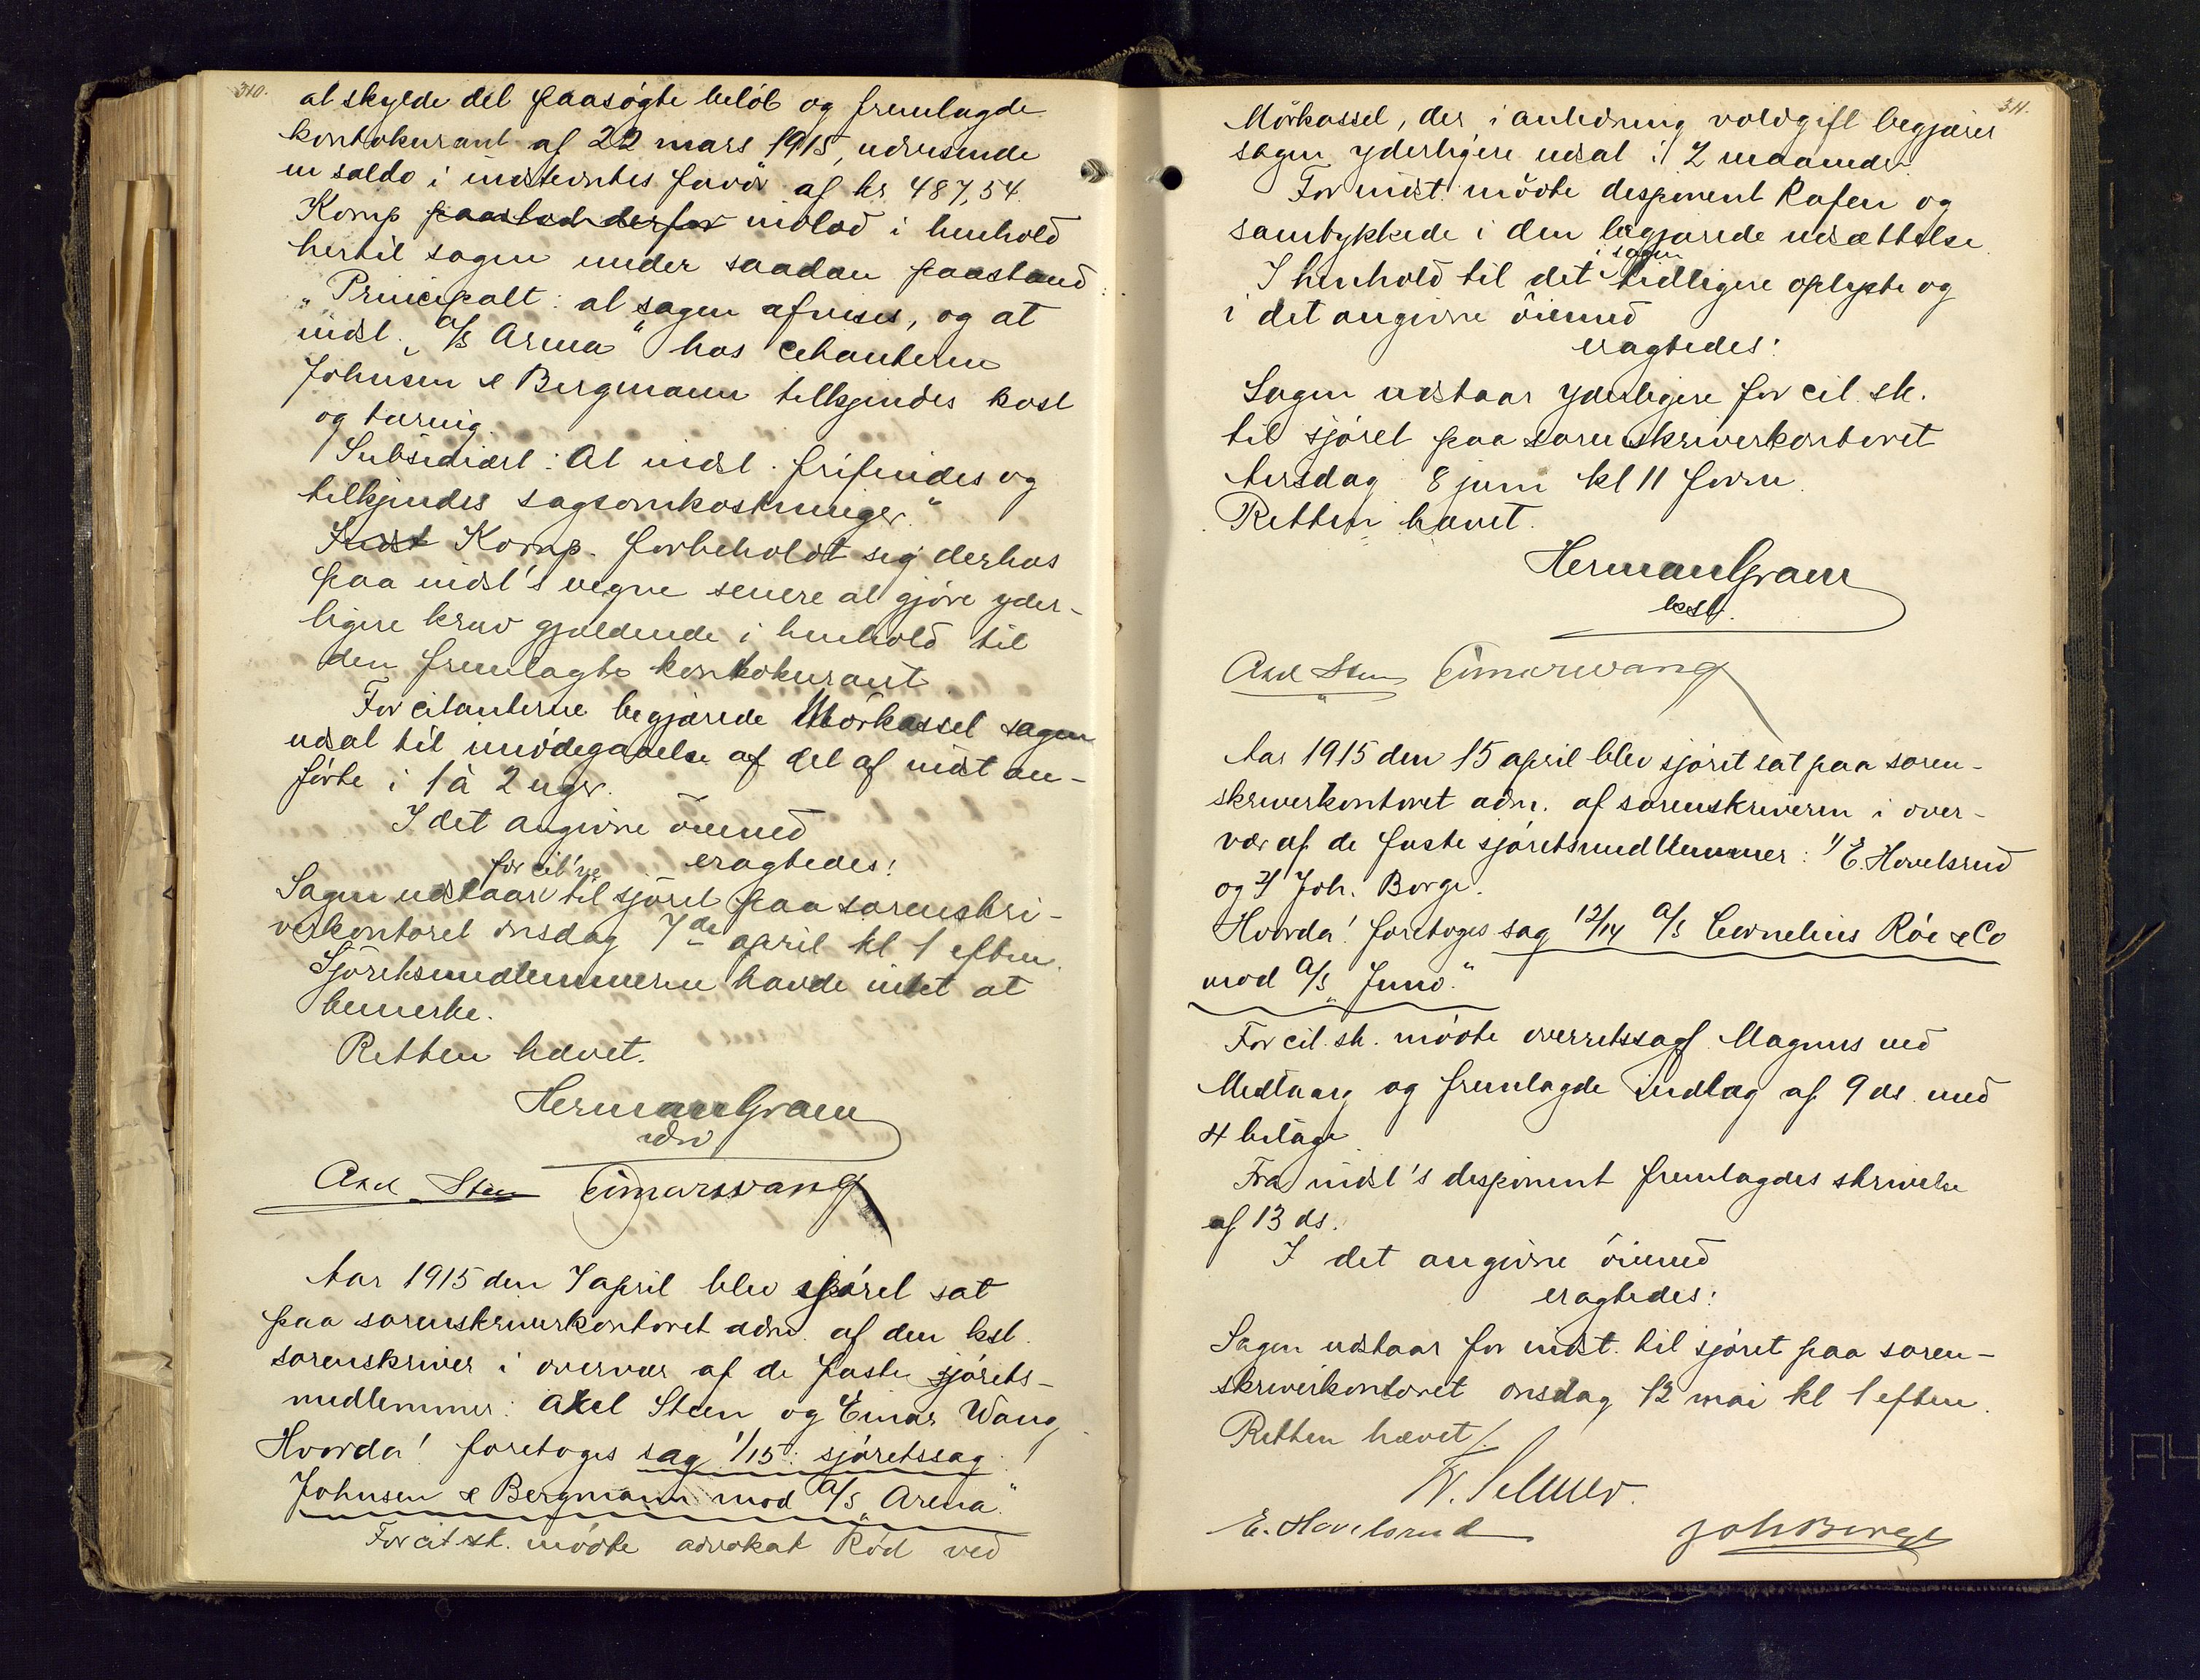 310.
at skylde det paasøgte beløb og fremlagde
kontokurant af 22 mars 1915, udvisende
en saldo i indstevntes favør af kr 487,54.
Komp paastod derfor indlod i henhold
hertil sagen under saadan paastand:
„Principalt: at sagen afvises, og at
indst. „A/S Arena" hos citanterne
Johnsen & Bergmann tilkjendes kost
og tæring.
Subsidiært: At indst. frifindes og
tilkjendes sagsomkostninger."
Indst Komp. forbeholdt sig derhos
paa indst's vegne senere at gjøre yder-
ligere krav gjældende i henhold til
den fremlagte kontokurant.
For citanterne begjærede Mörkassel sagen
udsat til imødegaaelse af det af indst an-
førte i 1 à 2 uger.
I det angivne öiemed
eragtedes!
for cit'ne
Sagen udstaar til sjøret paa sorenskri-
verkontoret onsdag 7de april kl 1 efterm.
Sjøretsmedlemmerne havde intet at
bemerke.
Retten hævet.
Herman Gram
Axel Steen Einar Wang
Aar 1915 den 7 april blev sjøret sat
paa sorenskriverkontoret adm. af den kst.
sorenskriver i overvær af de faste sjørets-
medlemmer: Axel Steen og Einar Wang
Hvorda! foretoges sag 1/15: sjøretssag:
Johnsen & Bergmann mod A/S „Arena".
For cit. sk. mødte advokat Rød ved
311.
Mörkassel, der i anledning voldgift begjærer
sagen yderligere udsat i 2 maaneder.
For indst. mødte disponent Rafen og
samtykkede i den begjærede udsættelse.
i sagen
I henhold til det tidligere oplyste og
i det angivne öiemed
eragtedes:
Sagen udstaar yderligere for cit. sk.
til sjøret paa sorenskriverkontoret
tirsdag 8 juni kl 11 form.
Retten hævet.
Herman Gram
kst.
Axel Steen Einar Wang
Aar 1915 den 15 april blev sjøret sat paa soren-
skriverkontoret adm. af sorenskriveren i over-
vær af de faste sjøretsmedlemmer: 1) E. Hovelsrud
og 2) Joh. Borge.
Hvorda! foretoges sag 12/14 A/S Cornelius Röe & Co
mod A/S „Juno."
For cit. sk. mødte overretssagf. Magnus ved
Medtaarg og fremlagde indlæg af 9 ds. med
4 bilage.
Fra indst's disponent fremlagdes skrivelse
af 13 ds.
I det angivne öiemed
eragtedes:
Sagen udstaar for indst. til sjøret paa soren-
skriverkontoret onsdag 12 mai kl 1 efterm.
Retten hævet/.
E. Hovelsrud Joh Borge